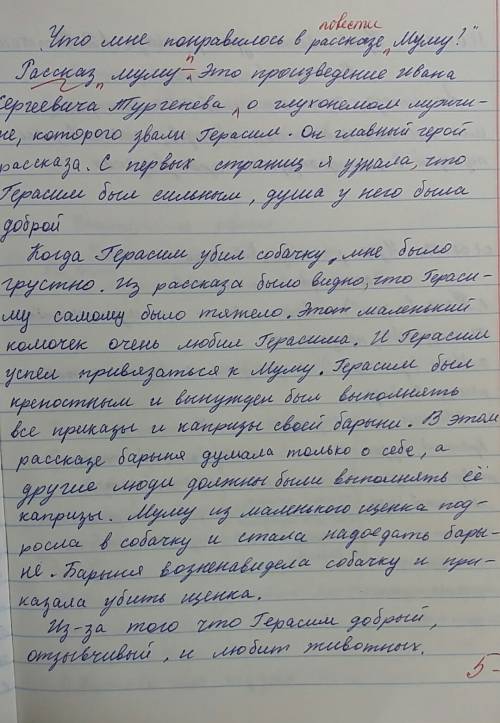 повести
Что мне понравилось в рассказе „Муму?"
Рассказ „муму" – это произведение Ивана
Сергеевича Тургенева о глухонемом мужчи-
не, которого звали Герасим. Он главный герой
рассказа. С первых страниц я узнала, что
Герасим был сильным, душа у него была
доброй
Когда Герасим убил собачку, мне было
грустно. Из рассказа было видно, что Гераси-
му самому было тяжело. Этот маленький
комочек очень любил Герасима. И Герасим
успел привязаться к Муму. Герасим был
крепостным и вынужден был выполнять
все приказы и капризы своей барыни. В этом
рассказе барыня думала только о себе, а
другие люди должны были выполнять её
капризы. Муму из маленького щенка под-
росла в собачку и стала надоедать бары-
не. Барыня возненавидела собачку и при-
казала убить щенка.
Из-за того что Герасим добрый,
отзывчивый, и любит животных.
5-